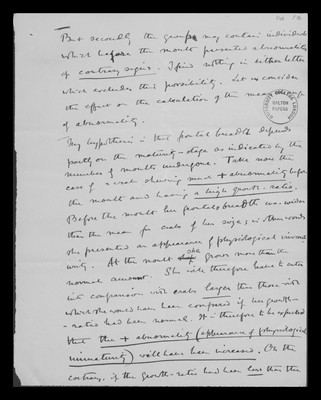 But secondly the groups may contain individuals
which before the moult presented abnormality
of contrary signs. I find nothing in either letter
which excludes this possibility. Let us consider
the effect on the calculation of the mean change
of abnormality.
My hypothesis is that frontal breadth depends
partly on the maturity-stage as indicated by the
number of moults undergone. Take now the
case of a crab shewing much + abnormality before
the moult and having a high growth-ratio.
Before the moult her frontal breadth was wider
than the mean for crabs of her size; in other words
she presented an appearance of physiological imma-
turity. At the moult she grows more than the
normal amount. She will therefore have to enter
into comparison with crabs larger than those with
which she would have been compared if her growth-
-ratio had been normal. It is therefore to be expected
that the + abnormality (appearance of physiological
immaturity) will have been increased. On the
contrary, if the growth-ratio had been less than the
GALTON
PAPERS